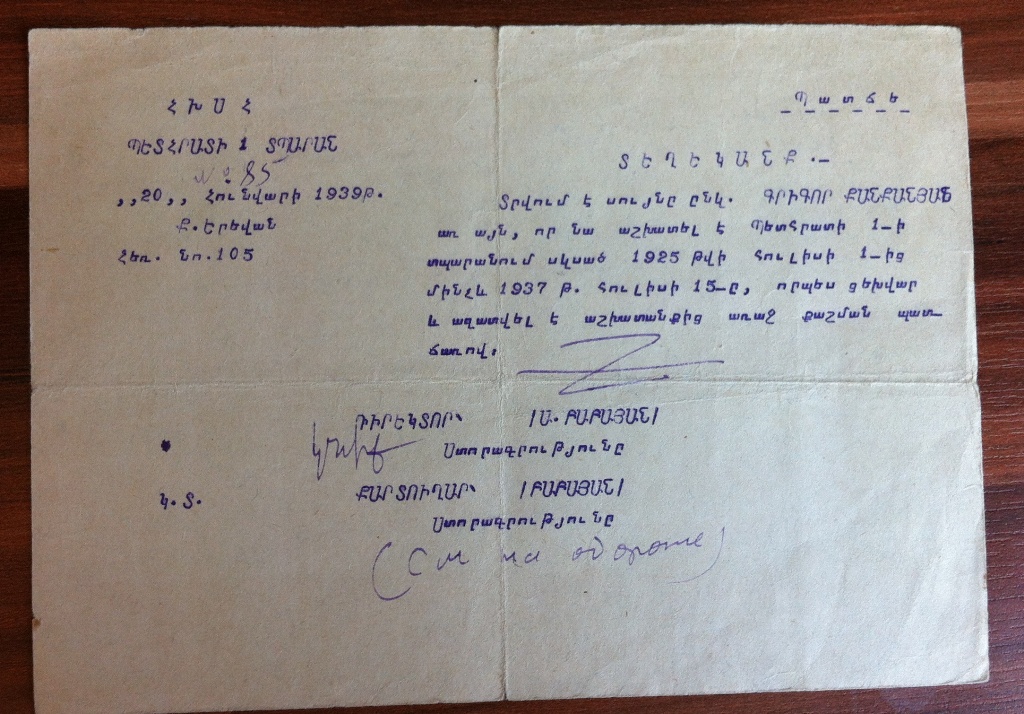 Հ Խ Ս Հ
ՊԵՏՀՐԱՏԻ 1 ՏՊԱՐԱՆ
№ 85
,,20,, Հունվարի 1939թ.
Ք.Երեվան
Հեռ. նո.105
Պ ա տ ճ ե
Տ Ե Ղ Ե Կ Ա Ն Ք .—
Տրվում է սույնը ընկ. ԳՐԻԳՈՐ ՔԱՆՔԱՆՅԱՆ
առ այն, որ նա աշխատել է Պետհրատի 1-ի
տպարանում սկսած 1925 թվի հուլիսի 1-ից
մինչև 1937 թ. հուլիսի 15-ը, որպես ցեխվար
և ազատվել է աշխատանքից առաջ քաշման պատ-
ճառով,
ԴԻՐԵԿՏՈՐ՝ /Ա. ԲԱԲԱՅԱՆ/
կնիք Ստորագրությունը
Կ.Տ. ՔԱՐՏՈՒՂԱՐ՝ /ԲԱԲԱՅԱՆ/
Ստորագրությունը
(См на обороте)